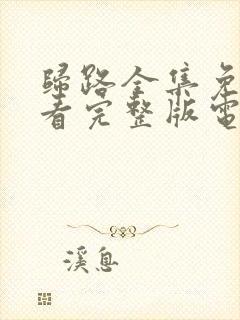 歸路全集免
看完整版電
溪息